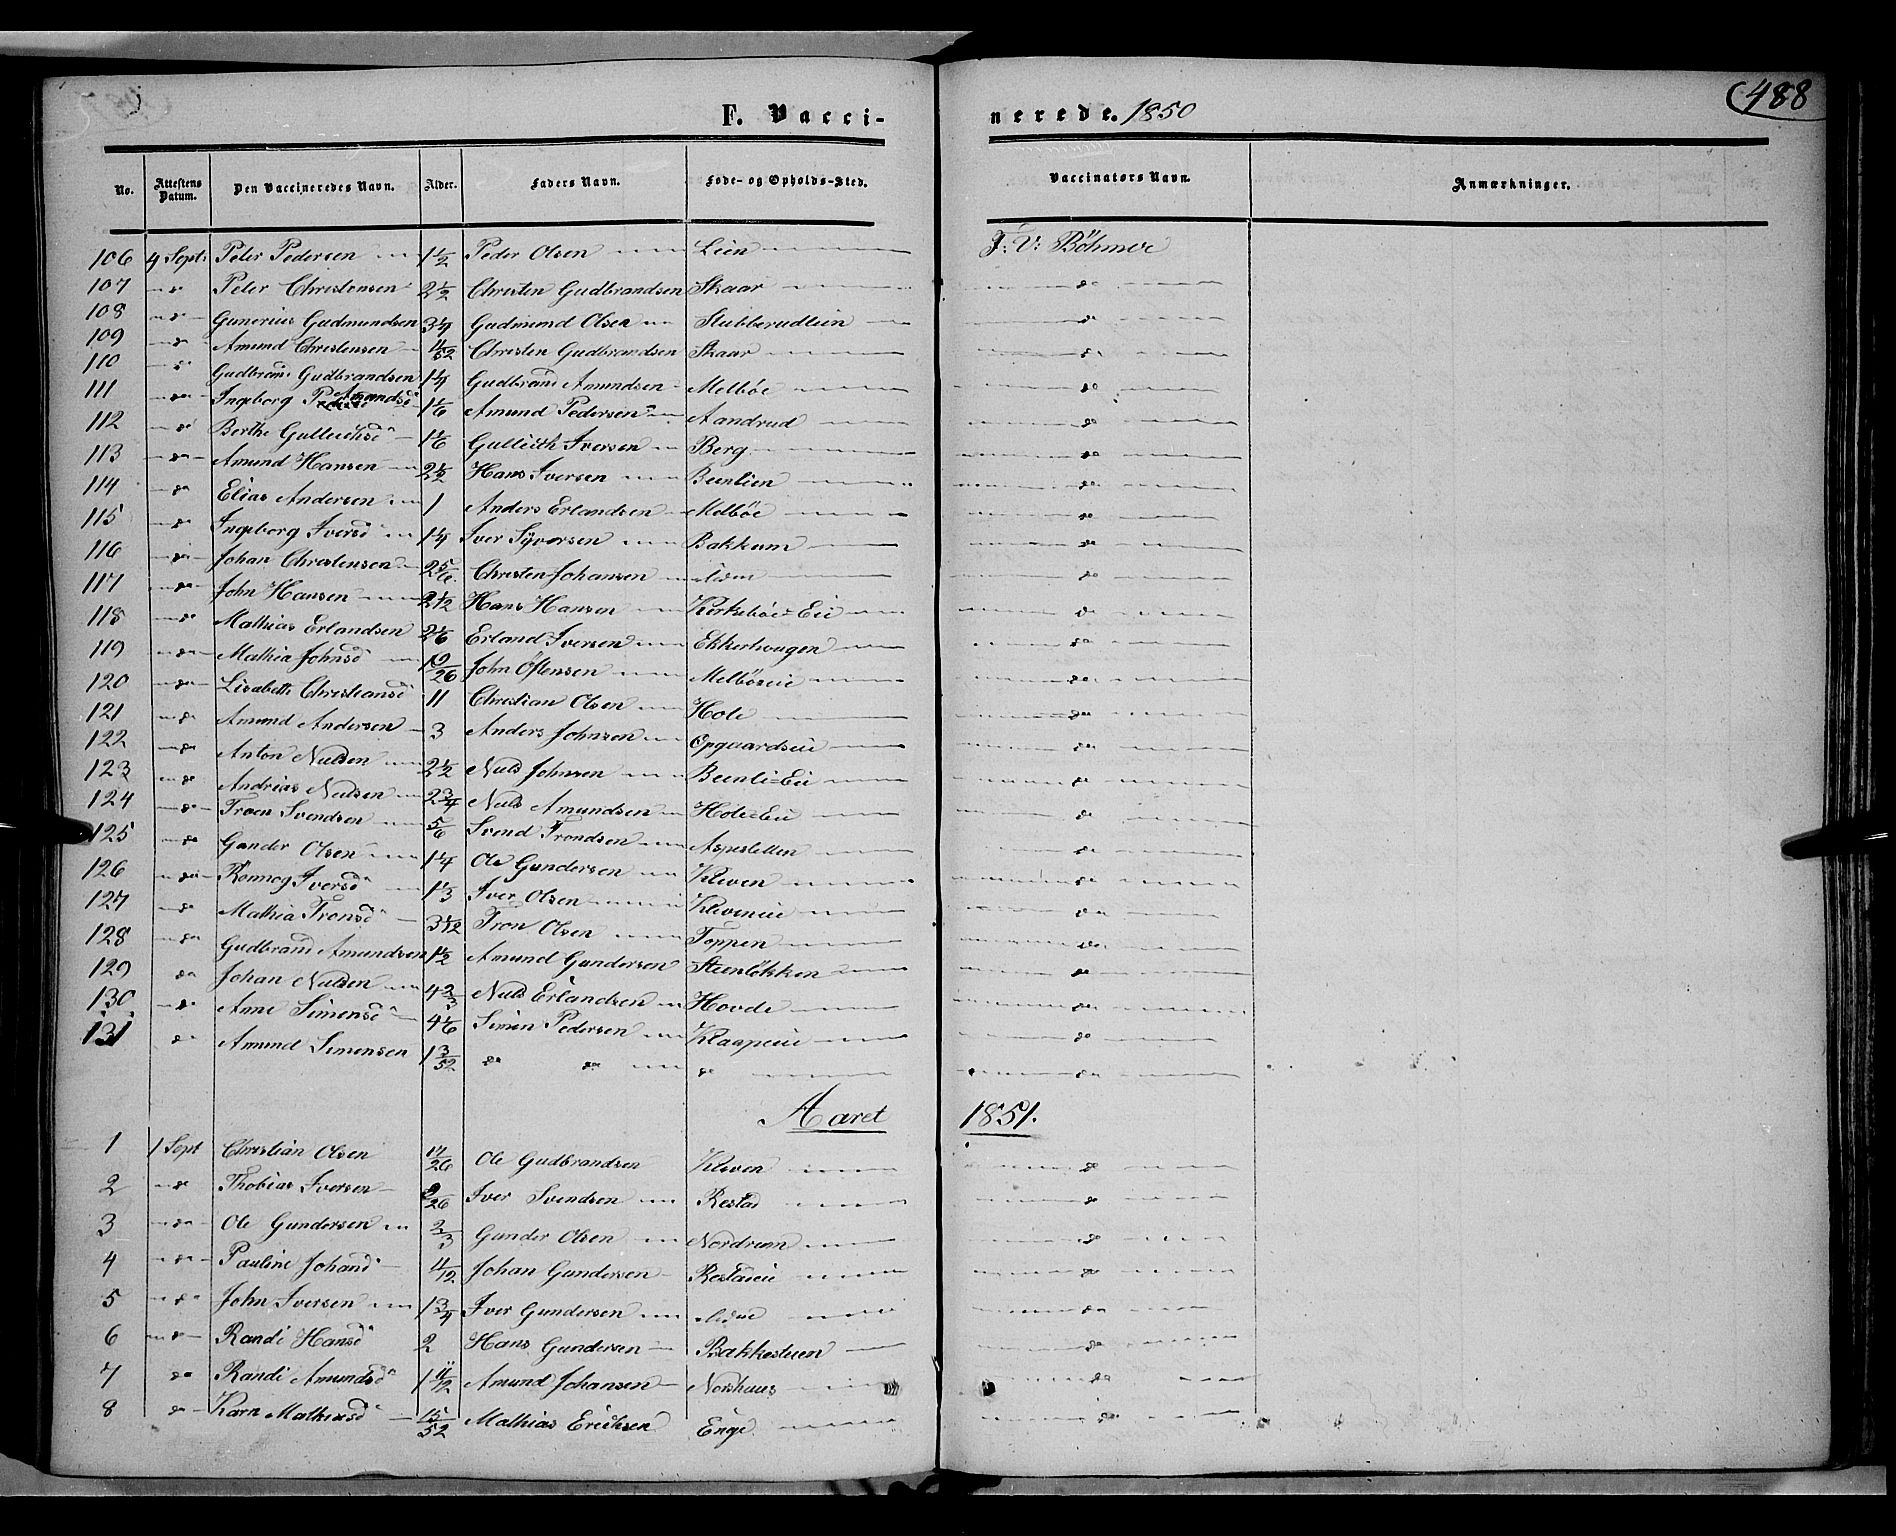 488
F. Vaccinerede. 1850
No. Attestens Datum. Den Vaccineredes Navn. Alder. Faders Navn. Føde- og Opholds-Sted. Vaccinators Navn. Anmærkninger.
106 4 Sept: Peter Pedersen 1 1/2 Peder Olsen Lien F: V: Böhmer
107 do Peter Christensen 2 1/2 Christen Gudbrandsen Skaar do
108 do Gunerius Gudmundsen 3 1/4 Gudmund Olsen Stubberudlien do
109 do Amund Christensen 11/52 Christen Gudbrandsen Skaar do
110 do Gudbrand Gudbrandsen 1 1/4 Gudbrand Amundsen Melböe do
111 do Ingeborg Amundsd 1 1/6 Amund Pedersen Aandrud do
112 do Berthe Gulleichsd 1 1/6 Gulleich Iversen Berg do
113 do Amund Hansen 2 1/2 Hans Iversen Beenlien do
114 do Elias Andersen 1 Anders Erlandsen Melböe do
115 do Ingeborg Iversd 1 1/4 Iver Syversen Bakkum do
116 do Johan Christensen 2 5/6 Christen Johansen do
117 do John Hansen 2 1/12 Hans Hansen Kirkeböe-Eie do
118 do Mathias Erlandsen 2 1/6 Erland Iversen Ekkerhougen do
119 do Mathia Johnsd 19/26 John Östensen Melböeeie do
120 do Lisabeth Christiansd 11 Christian Olsen Hole do
121 do Amund Andersen 3 Anders Johnsen Opgaardseie do
122 do Anton Nielsen 2 1/2 Niels Johnsen Beenli-Eie do
123 do Andrias Nielsen 2 3/4 Niels Amundsen Hole-Eie do
124 do Troen Svendsen 5/6 Svend Trondsen Aspesletten do
125 do Gunder Olsen 1 1/4 Ole Gundersen Kleven do
126 do Rönnog Iversd 1 1/3 Iver Olsen Kleveneie do
127 do Mathia Tronsd 3 1/12 Tron Olsen Toppen do
128 do Gudbrand Amundsen 1 1/2 Amund Gundersen Steenlökken do
129 do Johan Nielsen 4 2/3 Niels Erlandsen Hovde do
130 do Anne Simensd 4 1/6 Simen Pedersen Klaapeie do
131 do Amund Simensen 1 3/52 do do do do
Aaret 1851.
1 1 Sept Christian Olsen 17/26 Ole Gudbrandsen Kleven do
2 do Thobias Iversen 9/26 Iver Svendsen Restad do
3 do Ole Gundersen 2/3 Gunder Olsen Nordrum do
4 do Pauline Johansd 11/12 Johan Gundersen Restadeie do
5 do John Iversen 1 3/4 Iver Gundersen do
6 do Randi Hansd 2 Hans Gundersen Bakkestuen do
7 do Randi Amundsd 1 11/12 Amund Johansen Norshaus do
8 do Karn Mathiasd 15/52 Mathias Erichsen Enge do